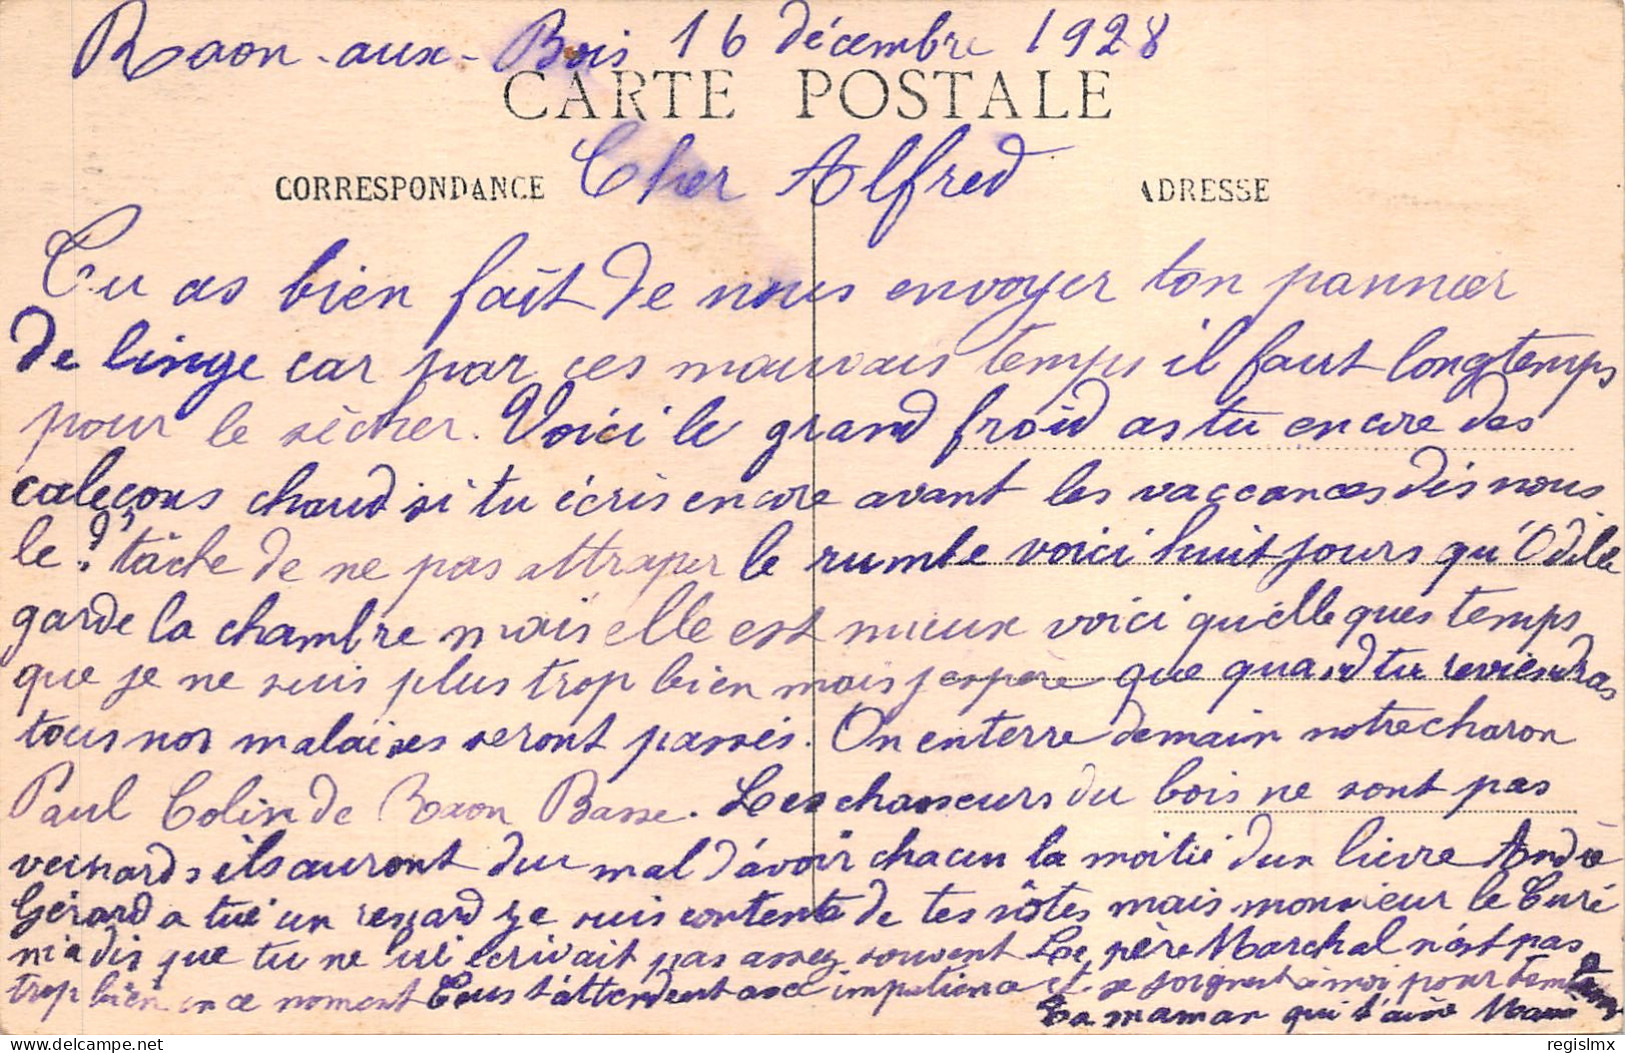 Raon-aux-Bois 16 décembre 1928
CARTE POSTALE
CORRESPONDANCE Cher Alfred ADRESSE
Tu as bien fait de nous envoyer ton pannier
de linge car par ces mauvais temps il faut longtemps
pour le sècher. Voici le grand froid as tu encore des
caleçons chaud si tu écris encore avant les vaccances dis nous
le. tâche de ne pas attraper le rumbe voici huit jours qu'Odile
garde la chambre mais elle est mieux voici quelleques temps
que je ne suis plus trop bien mais j'espère que quand tu reviendras
tous nos malaises seront passés. On enterre demain notre charon
Paul Colin de Raon Basse. Les chasseurs du bois ne sont pas
veinards, ils auront du mal d'avoir chacun la moitié d'un lièvre André
Gérard a tué un renard je suis contente de tes nôtes mais monsieur le Curé
m'a dis que tu ne lui écrivait pas assez souvent Le père Marchal n'est pas
trop bien en ce moment Tous t'attendent avec impatience et se joignent à moi pour
Ta maman qui t'aime Maria
regislmx
delcampe.net